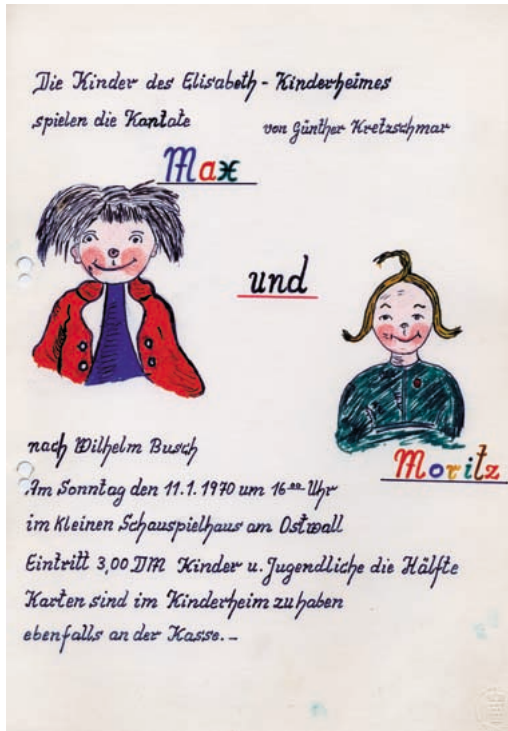 Die Kinder des Elisabeth - Kinderheimes
spielen die Kantate von Günther Kretzschmar
Max
und
Moritz
nach Wilhelm Busch
Am Sonntag den 11.1.1970 um 16⁰⁰ Uhr
im kleinen Schauspielhaus am Ostwall
Eintritt 3,00 DM Kinder u. Jugendliche die Hälfte
Karten sind im Kinderheim zu haben
ebenfalls an der Kasse.-